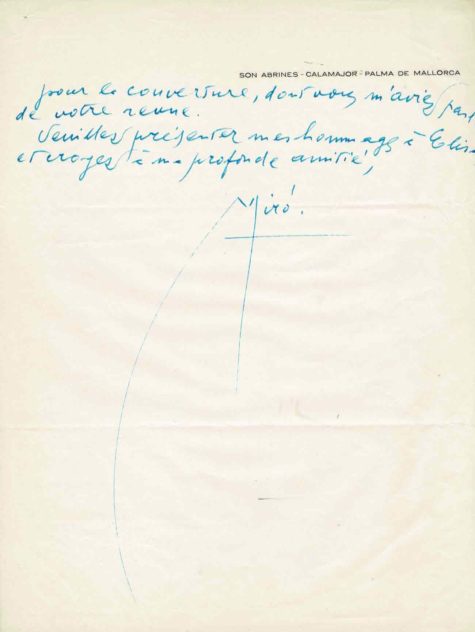 SON ABRINES - CALAMAJOR - PALMA DE MALLORCA
pour la couverture, dont vous m'aviez parl
de votre revue.
Veuillez présenter mes hommages à Elisa
et croyez à ma profonde amitié,
Miró.